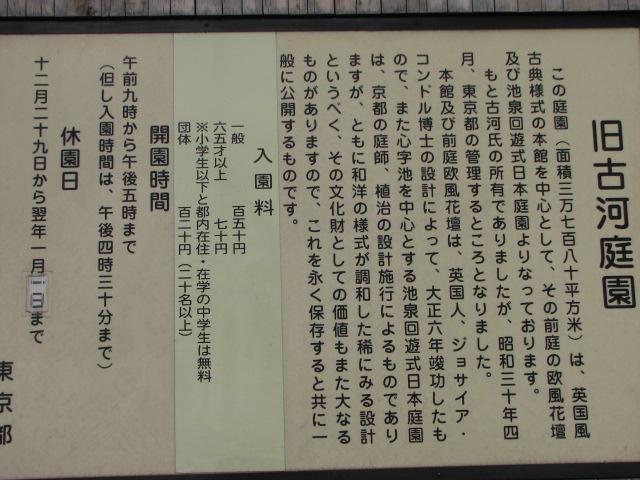 旧古河庭園
この庭園（面積三万七百八十平方米）は、英国風
古典様式の本館を中心として、その前庭の欧風花壇
及び池泉回遊式日本庭園よりなっております。
もと古河氏の所有でありましたが、昭和三十年四
月、東京都の管理するところとなりました。
本館及び前庭欧風花壇は、英国人、ジョサイア・
コンドル博士の設計によって、大正六年竣功したも
ので、また心字池を中心とする池泉回遊式日本庭園
は、京都の庭師、植治の設計施行によるものであり
ますが、ともに和洋の様式が調和した稀にみる設計
というべく、その文化財としての価値もまた大なる
ものがありますので、これを永く保存すると共に一
般に公開するものです。
入園料
一般 百五十円
六五才以上 七十円
※小学生以下と都内在住・在学の中学生は無料
団体 百二十円（二十名以上）
開園時間
午前九時から午後五時まで
（但し入園時間は、午後四時三十分まで）
休園日
十二月二十九日から翌年一月一日まで
東京都